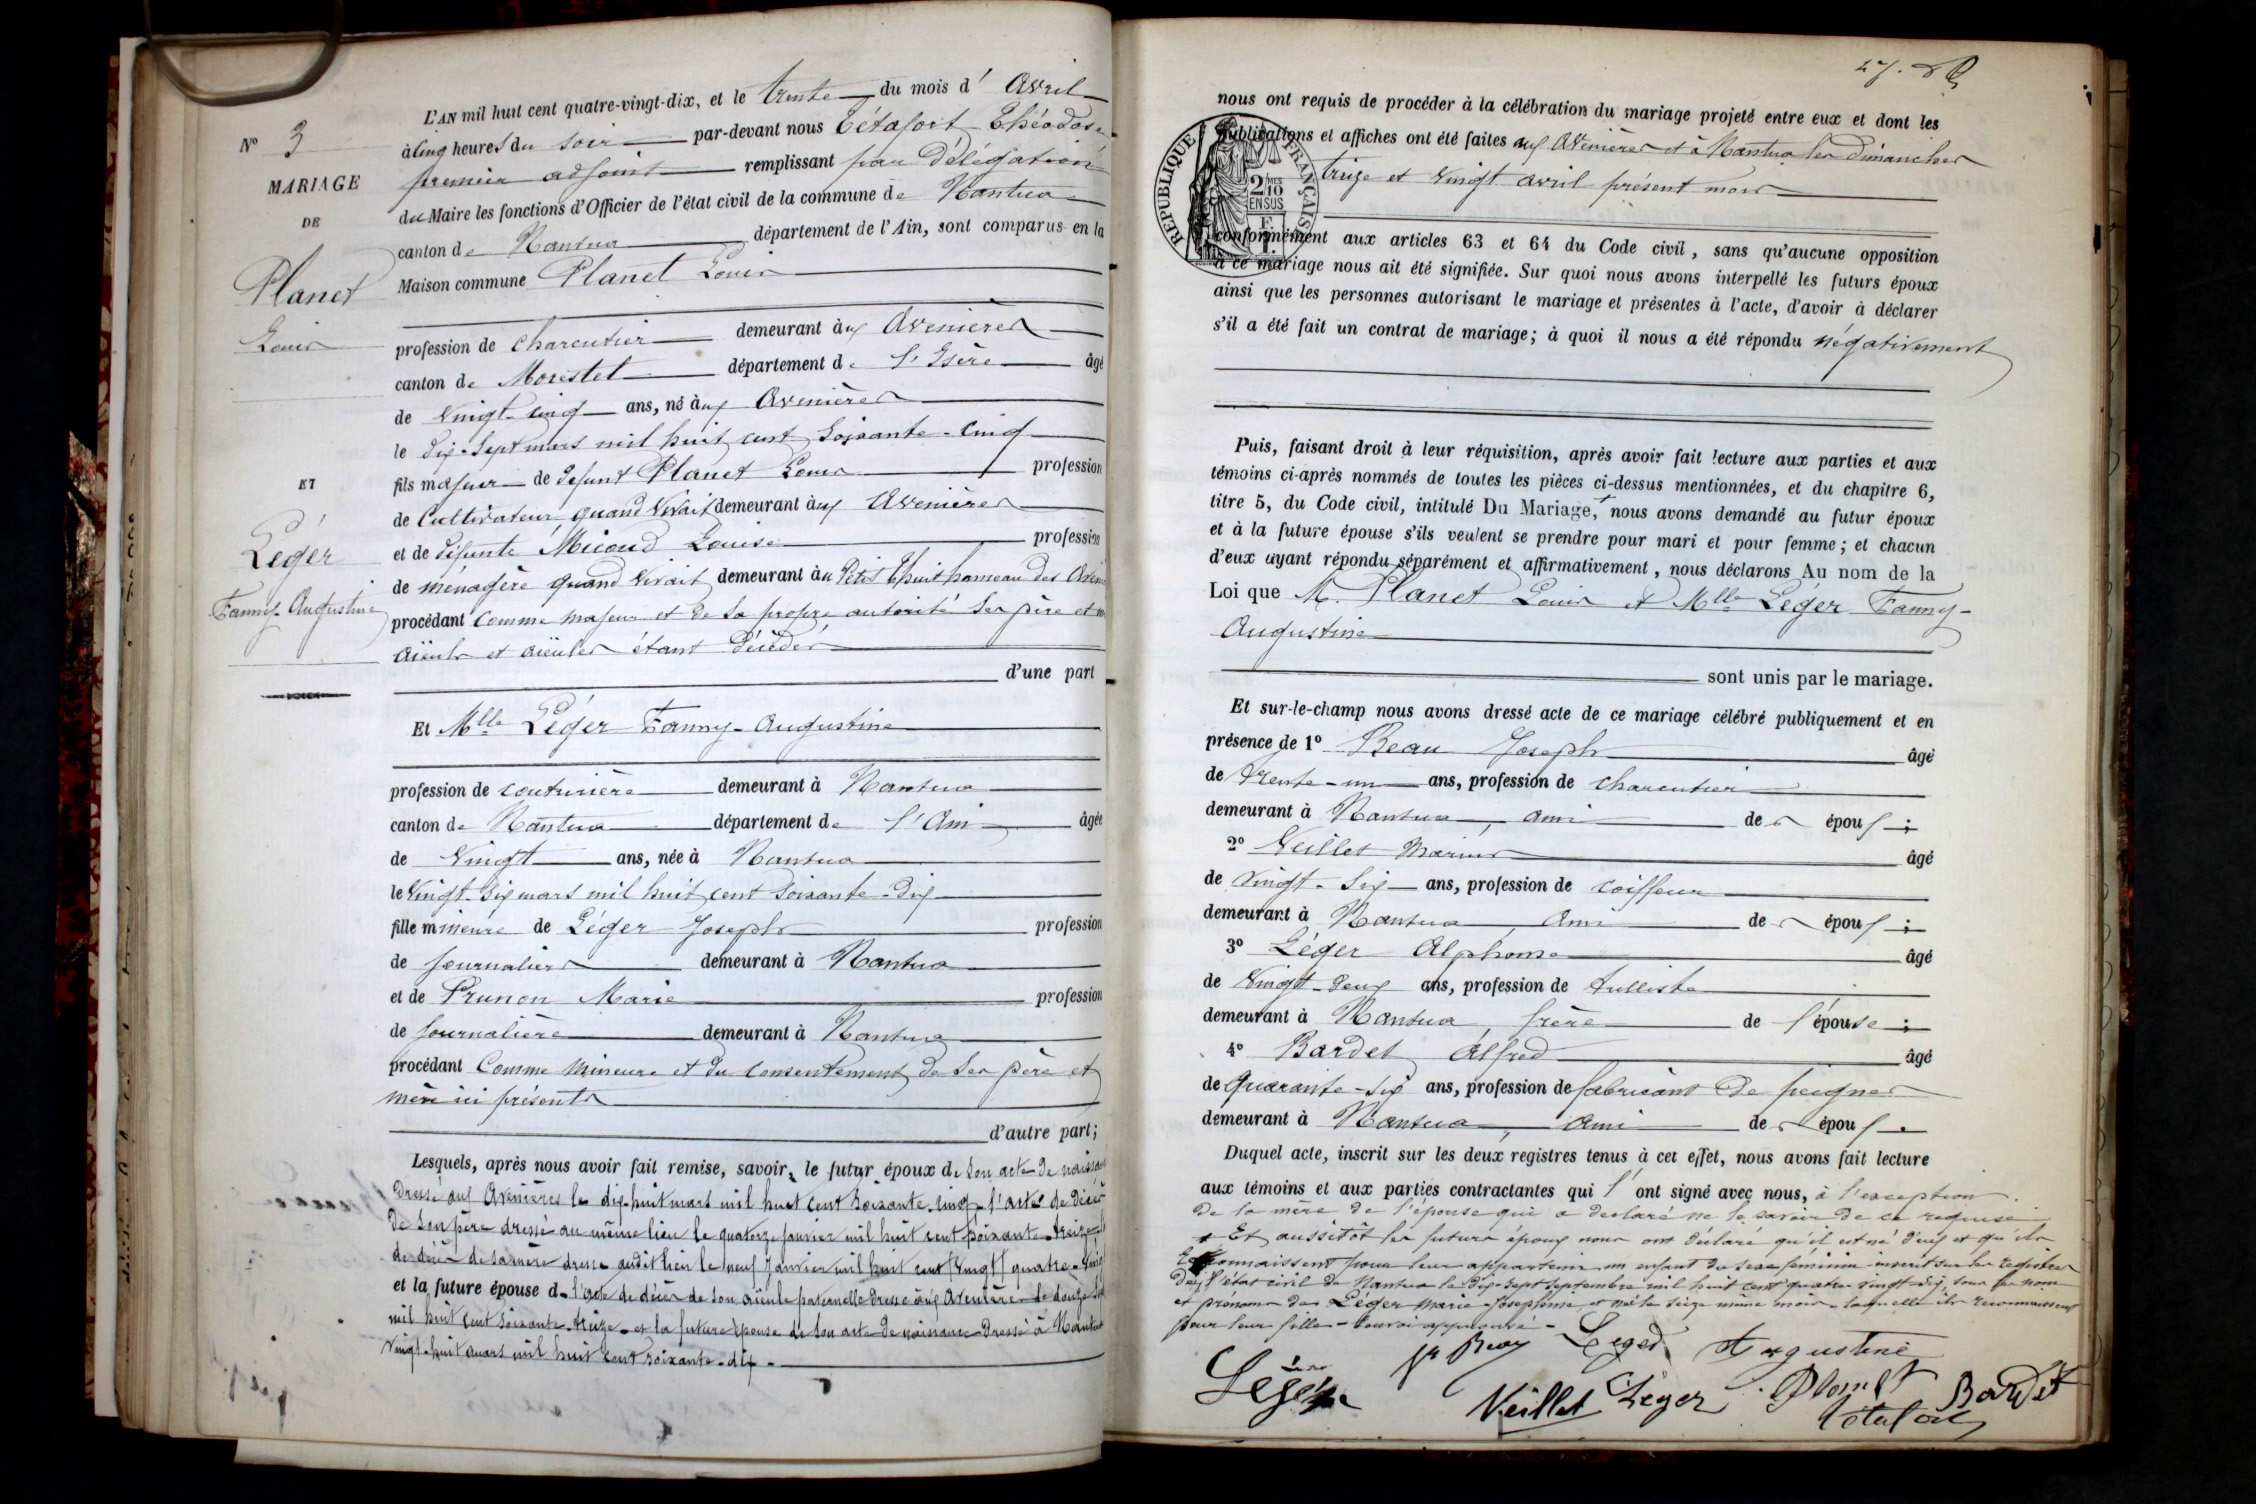 N° 3
MARIAGE
DE
Planet
Louis
ET
Léger
Fanny-Augustine
L'AN mil huit cent quatre-vingt-dix, et le trente du mois d' Avril
à cinq heures du soir par-devant nous Tétafort Théodose
premier adjoint remplissant par Délégation
du Maire les fonctions d'Officier de l'état civil de la commune de Nantua
canton de Nantua département de l'Ain, sont comparus en la
Maison commune Planet Louis
profession de charcutier demeurant aux Avenières
canton de Morestel département de l'Isère âgé
de vingt-cinq ans, né aux Avenières
le dix-sept mars mil huit cent soixante-cinq
fils majeur de défunt Planet Louis profession
de Cultivateur quand vivait demeurant aux Avenières
et de défunte Micoud Louise profession
de ménagère quand vivait demeurant au Petit Thuit hameau des
procédant comme majeur et de sa propre autorité ses père et
aïeuls et aïeules étant décédés
d'une part
Et Mlle Léger Fanny-Augustine
profession de couturière demeurant à Nantua
canton de Nantua département de l'Ain âgée
de vingt ans, née à Nantua
le vingt-six mars mil huit cent soixante-dix
fille mineure de Léger Joseph profession
de journalier demeurant à Nantua
et de Prunon Marie profession
de journalière demeurant à Nantua
procédant comme mineure et du consentement de ses père et
mère ici présents
d'autre part;
Lesquels, après nous avoir fait remise, savoir, le futur époux de son acte de
dressé aux Avenières le dix-huit mars mil huit cent soixante-cinq, l'acte de décès
de son père dressé au même lieu le quatorze janvier mil huit cent soixante-treize
de décès de sa mère dressé audit lieu le neuf Janvier mil huit cent quatre-
et la future épouse d l'acte de décès de son aïeule paternelle dressé aux Avenières le douze
mil huit cent soixante-treize et la future épouse de son acte de naissance dressé à Nantua
vingt-huit mars mil huit cent soixante-dix
RÉPUBLIQUE FRANÇAISE
2/10
EN SUS
nous ont requis de procéder à la célébration du mariage projeté entre eux et dont les
publications et affiches ont été faites aux Avenières et à Nantua les dimanches
treize et vingt avril présent mois
conformément aux articles 63 et 64 du Code civil, sans qu'aucune opposition
à ce mariage nous ait été signifiée. Sur quoi nous avons interpellé les futurs époux
ainsi que les personnes autorisant le mariage et présentes à l'acte, d'avoir à déclarer
s'il a été fait un contrat de mariage; à quoi il nous a été répondu négativement
Puis, faisant droit à leur réquisition, après avoir fait lecture aux parties et aux
témoins ci-après nommés de toutes les pièces ci-dessus mentionnées, et du chapitre 6,
titre 5, du Code civil, intitulé Du Mariage, nous avons demandé au futur époux
et à la future épouse s'ils veulent se prendre pour mari et pour femme; et chacun
d'eux ayant répondu séparément et affirmativement, nous déclarons Au nom de la
Loi que M. Planet Louis et Mlle Leger Fanny-
Augustine
sont unis par le mariage.
Et sur-le-champ nous avons dressé acte de ce mariage célébré publiquement et en
présence de 1° Beau Joseph âgé
de trente-un ans, profession de charcutier
demeurant à Nantua, ami de s époux;
2° Veillet Marius âgé
de vingt-six ans, profession de coiffeur
demeurant à Nantua, ami de s époux;
3° Léger Alphonse âgé
de vingt-deux ans, profession de tulliste
demeurant à Nantua frère de l'épouse;
4° Bardet Alfred âgé
de quarante-six ans, profession de fabricant de peignes
demeurant à Nantua, ami de s époux.
Duquel acte, inscrit sur les deux registres tenus à cet effet, nous avons fait lecture
aux témoins et aux parties contractantes qui l'ont signé avec nous, à l'exception
de la mère de l'épouse qui a déclaré ne le savoir de ce requise
+ Et aussitôt les futurs époux nous ont déclaré qu'il est né d'eux et qu'ils
reconnaissent pour leur appartenir un enfant du sexe féminin inscrit sur les registres
de l'état civil de Nantua le dix-sept septembre mil huit cent quatre-vingt- sous les nom
et prénoms de Léger Marie-Joséphine et née le seize même mois, laquelle ils reconnaissent
pour leur fille - renvoi approuvé -
Jh Beau Leger Augustine
Léger Veillet Léger Planet Bardet
Tétafort